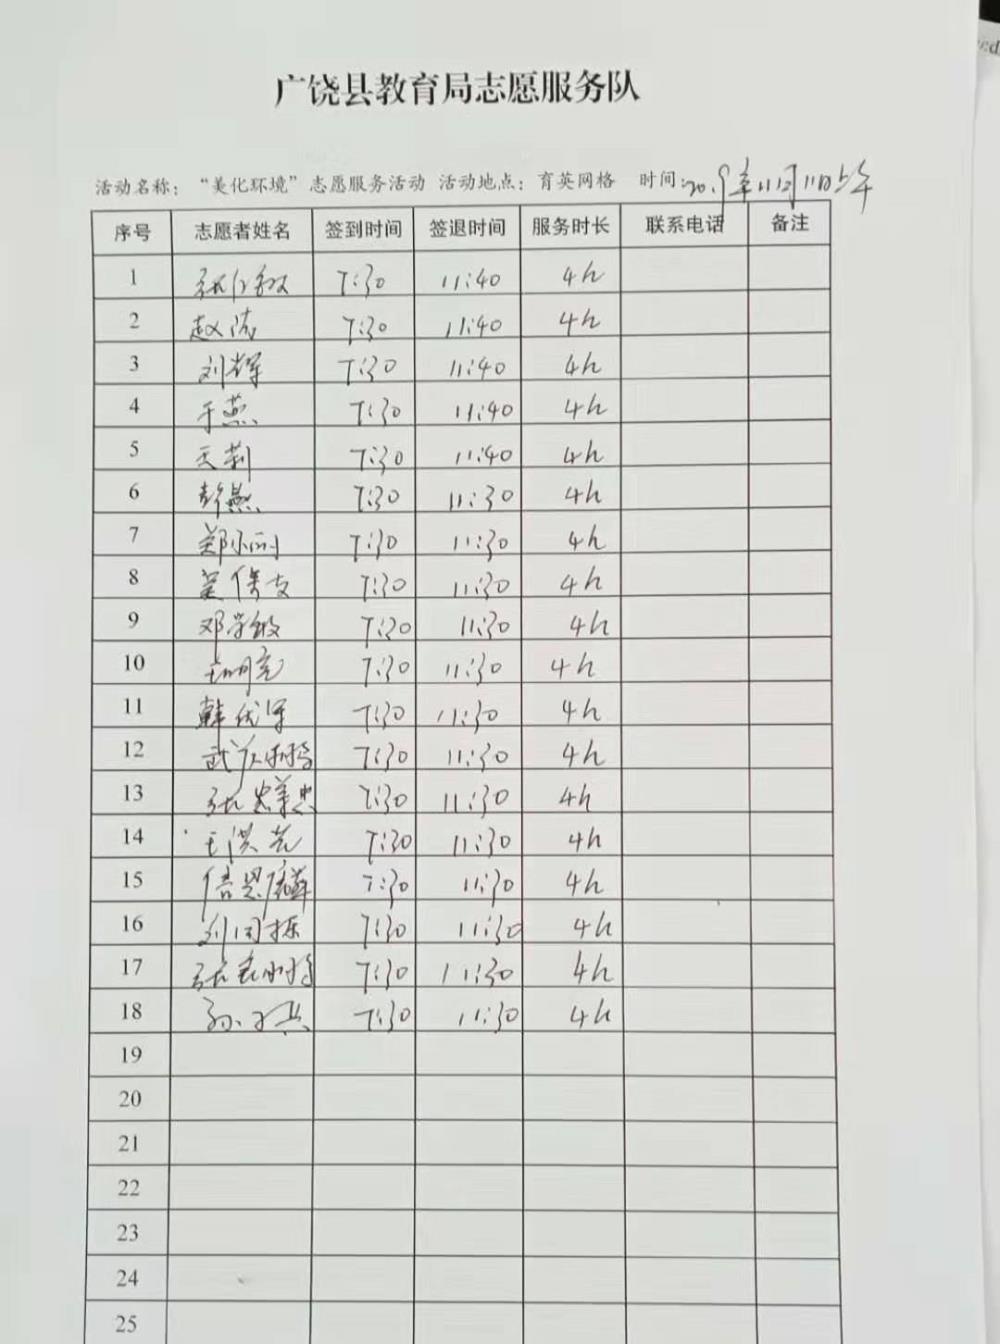 广饶县教育局志愿服务队
活动名称：“美化环境”志愿服务活动 活动地点：育英网格 时间：2019年11月11日上午
序号 志愿者姓名 签到时间 签退时间 服务时长 联系电话 备注
1 7:30 11:40 4h
2 赵 7:30 11:40 4h
3 刘辉 7:30 11:40 4h
4 于燕 7:30 11:40 4h
5 7:30 11:40 4h
6 彭燕 7:30 11:30 4h
7 郑 7:30 11:30 4h
8 7:30 11:30 4h
9 邓学敏 7:30 11:30 4h
10 7:30 11:30 4h
11 韩 7:30 11:30 4h
12 武 7:30 11:30 4h
13 张 7:30 11:30 4h
14 王洪 7:30 11:30 4h
15 7:30 11:30 4h
16 刘 7:30 11:30 4h
17 张 7:30 11:30 4h
18 孙 7:30 11:30 4h
19
20
21
22
23
24
25